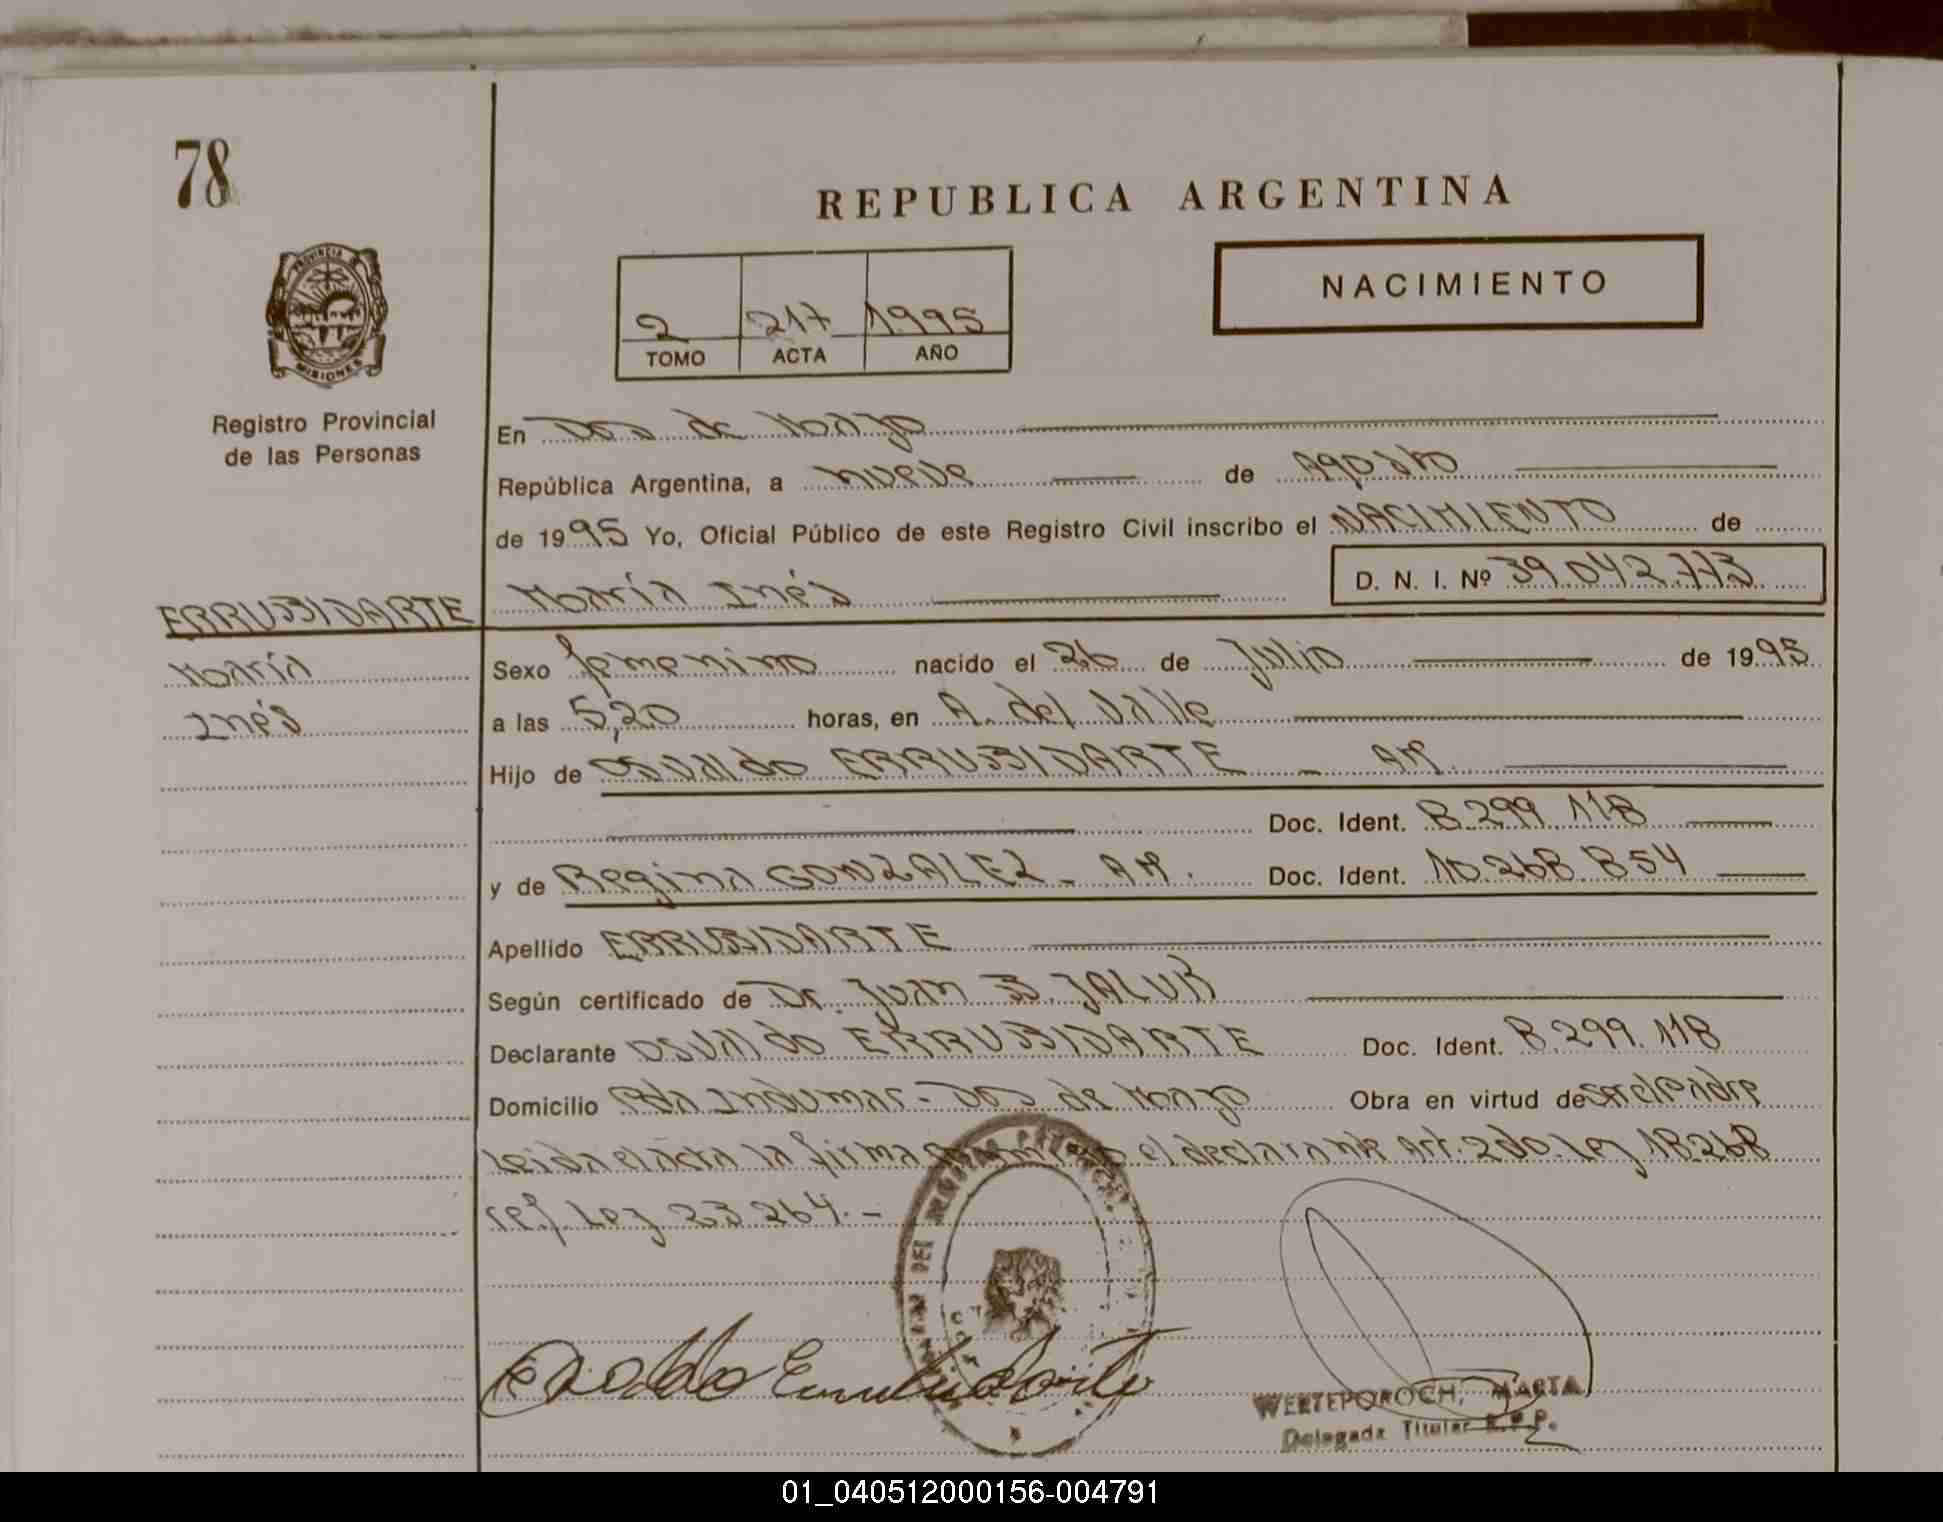 78
REPUBLICA ARGENTINA
NACIMIENTO
PROVINCIA DE
MISIONES
2 217 1995
TOMO ACTA AÑO
Registro Provincial
de las Personas
En Dos de Mayo
República Argentina, a nueve de Agosto
de 1995 Yo, Oficial Público de este Registro Civil inscribo el NACIMIENTO de
María Inés D. N. I. Nº 39.042.773
ERRUBIDARTE
María
Inés
Sexo femenino nacido el 26 de Julio de 1995
a las 5,20 horas, en A. del Valle
Hijo de Osvaldo ERRUBIDARTE - AM.
Doc. Ident. 8.299.118
y de Regina GONZALEZ - AM. Doc. Ident. 10.268.854
Apellido ERRUBIDARTE
Según certificado de Dr. Juan B. JALUK
Declarante Osvaldo ERRUBIDARTE Doc. Ident. 8.299.118
Domicilio Pda Indumar - Dos de Mayo Obra en virtud de ser el padre
Leida el acta la firma el declarante Art. 2do. Ley 18.268
ref Ley 23.264.-
WERTEPOROCH, MARTA
Delegada Titular R.P.P.
01_040512000156-004791